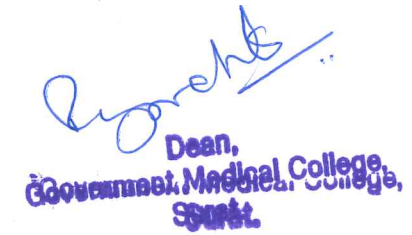 Dean,
Government Medical College,
Surat.